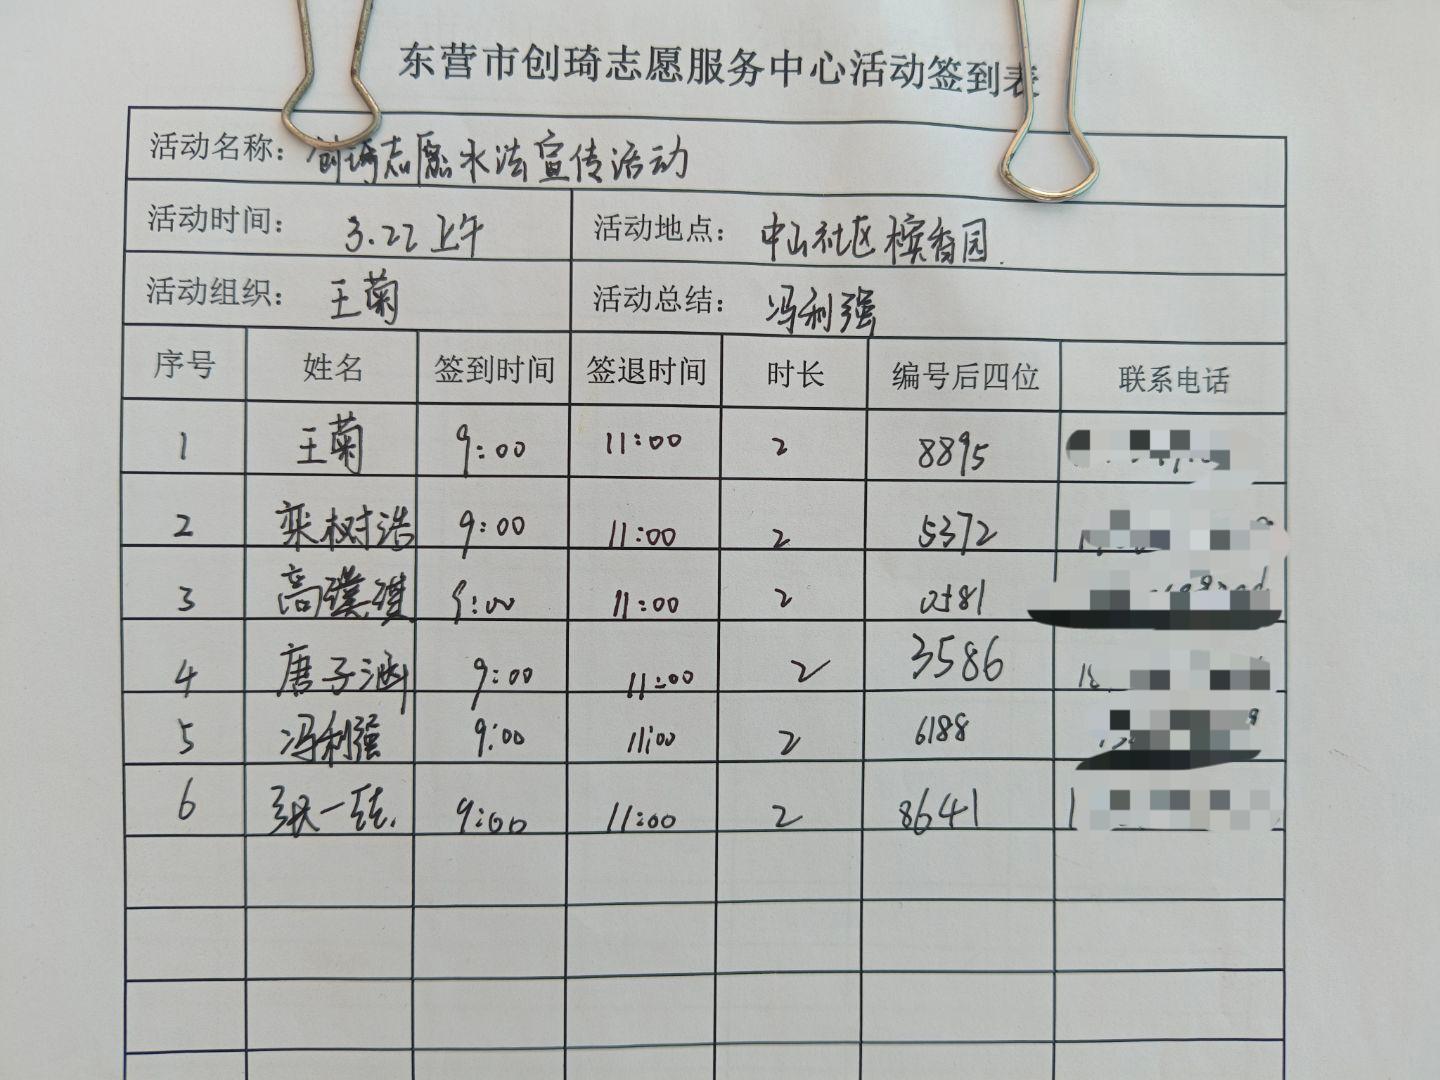 东营市创琦志愿服务中心活动签到表
活动名称：创琦志愿水法宣传活动
活动时间： 3.22上午 活动地点： 中山社区槟香园
活动组织： 王菊 活动总结： 冯利强
序号 姓名 签到时间 签退时间 时长 编号后四位 联系电话
1 王菊 9:00 11:00 2 8895
2 栾树浩 9:00 11:00 2 5372
3 高璞璞 9:00 11:00 2 0581
4 唐子涵 9:00 11:00 2 3586
5 冯利强 9:00 11:00 2 6188
6 张一 9:00 11:00 2 8641